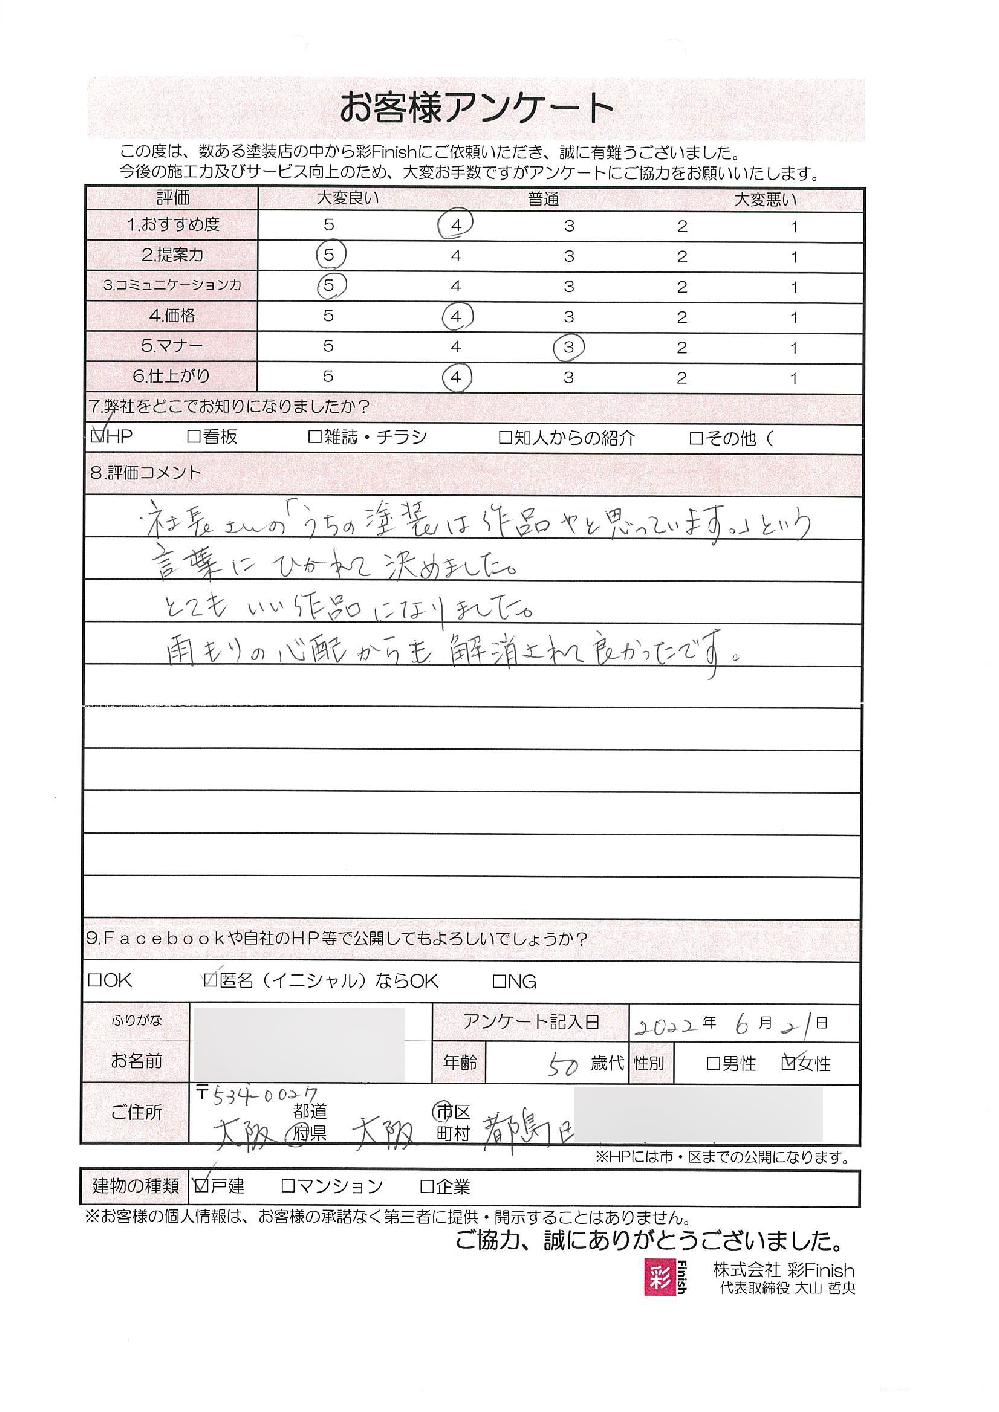 お客様アンケート
この度は、数ある塗装店の中から彩Finishにご依頼いただき、誠に有難うございました。
今後の施工力及びサービス向上のため、大変お手数ですがアンケートにご協力をお願いいたします。
評価 大変良い 普通 大変悪い
1.おすすめ度 5 4 3 2 1
2.提案力 5 4 3 2 1
3.コミュニケーション力 5 4 3 2 1
4.価格 5 4 3 2 1
5.マナー 5 4 3 2 1
6.仕上がり 5 4 3 2 1
7.弊社をどこでお知りになりましたか？
☑HP □看板 □雑誌・チラシ □知人からの紹介 □その他（
8.評価コメント
社長さんの「うちの塗装は作品やと思っています。」という
言葉にひかれて決めました。
とてもいい作品になりました。
雨もりの心配からも解消されて良かったです。
9.Facebookや自社のHP等で公開してもよろしいでしょうか？
□OK ☑匿名（イニシャル）ならOK □NG
ふりがな アンケート記入日 2022年 6月 21日
お名前 年齢 50歳代 性別 □男性 ☑女性
ご住所 〒534-0027
大阪 都道府県 大阪 市区町村 都島区
※HPには市・区までの公開になります。
建物の種類 ☑戸建 □マンション □企業
※お客様の個人情報は、お客様の承諾なく第三者に提供・開示することはありません。
ご協力、誠にありがとうございました。
彩 Finish 株式会社 彩Finish
代表取締役 大山 哲央